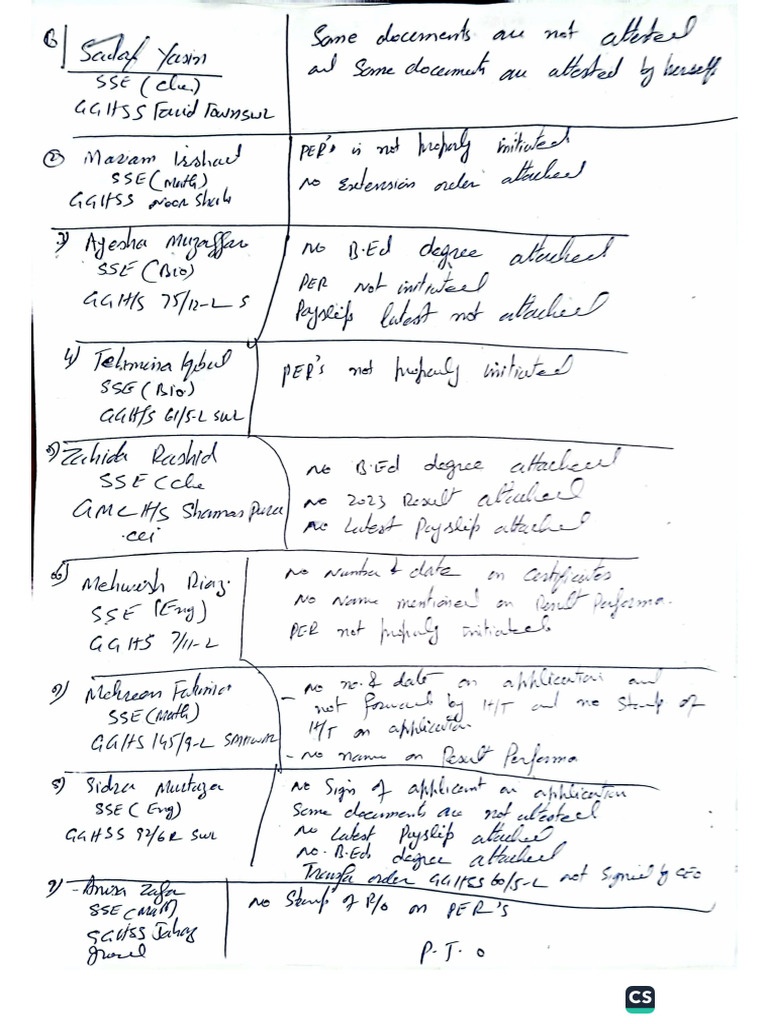 1) Sadaf Yasin
SSE (Che.)
GGHSS Farid Town SWL
Some documents are not attested
and Some documents are attested by herself
2) Mariam Irshad
SSE (Math)
GGHSS Noor Shah
PER's is not properly initiated
No Extension order attached
3) Ayesha Muzaffar
SSE (Bio)
GGH/S 75/12-L S
No B.Ed degree attached
PER Not initiated
Payslips latest not attached
4) Tehmina Iqbal
SSE (Bio)
GGH/S 61/5-L SWL
PER's not properly initiated
5) Zahida Rashid
SSE (Che
GMC H/S Shamas Pura
No B.Ed degree attached
No 2023 Result attached
No Latest Payslip attached
6) Mehwish Riaz.
SSE (Eng)
GGHS 7/11-L
No Number & date on Certificates
No Name mentioned on Result Performa.
PER not properly initiated
7) Mehreen Fatima
SSE (Math)
GGHS 145/9-L
- No no. & date on application and
not forward by H/T and no Stamp of
H/T on application
- No name on Result Performa
8) Sidra Murtaza
SSE (Eng)
GGHSS 92/6R SWL
No Sign of applicant on application
Some documents are not attested
No Latest Payslip attached
No B.Ed degree attached
Transfer order GGHSS 60/5-L not Signed by CEO
9) - Zafar
SSE (Math)
GGHSS
No Stamp of R/O on PER's
P.T.O
CS